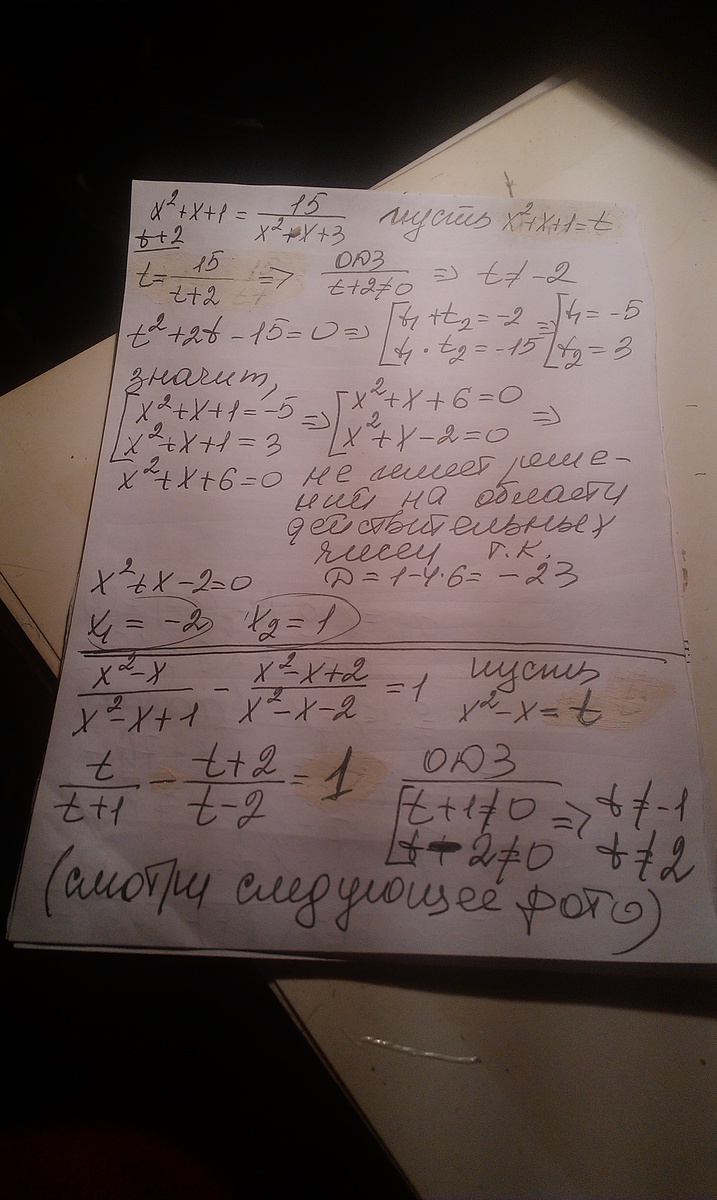 x²+x+1 = 15/(x²+x+3) пусть x²+x+1=t
t+2
t = 15/(t+2) => ОДЗ t+2≠0 => t≠-2
t²+2t-15=0 => [t₁+t₂=-2 t₁·t₂=-15 => [t₁=-5 t₂=3
значит,
[x²+x+1=-5 x²+x+1=3 => [x²+x+6=0 x²+x-2=0 =>
x²+x+6=0 не имеет реше-
ний на области
действительных
чисел т.к.
x²+x-2=0 D=1-4·6=-23
x₁=-2 x₂=1
(x²-x)/(x²-x+1) - (x²-x+2)/(x²-x-2) = 1 пусть x²-x=t
t/(t+1) - (t+2)/(t-2) = 1 ОДЗ [t+1≠0 t-2≠0 => t≠-1 t≠2
(смотри следующее фото)